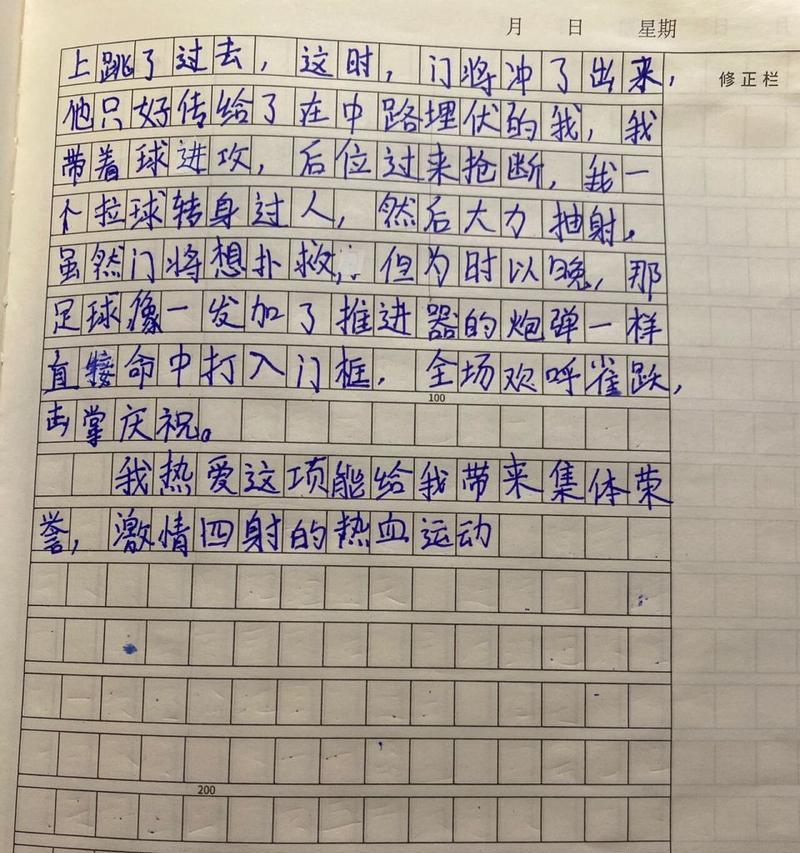 月 日 星期
修正栏
上跳了过去，这时，门将冲了出来，
他只好传给了在中路埋伏的我，我
带着球进攻，后位过来抢断，我一
个拉球转身过人，然后大力抽射。
虽然门将想扑救，但为时以晚，那
足球像一发加了推进器的炮弹一样
直接命中打入门框，全场欢呼雀跃，
100
击掌庆祝。
我热爱这项能给我带来集体荣
誉，激情四射的热血运动
200